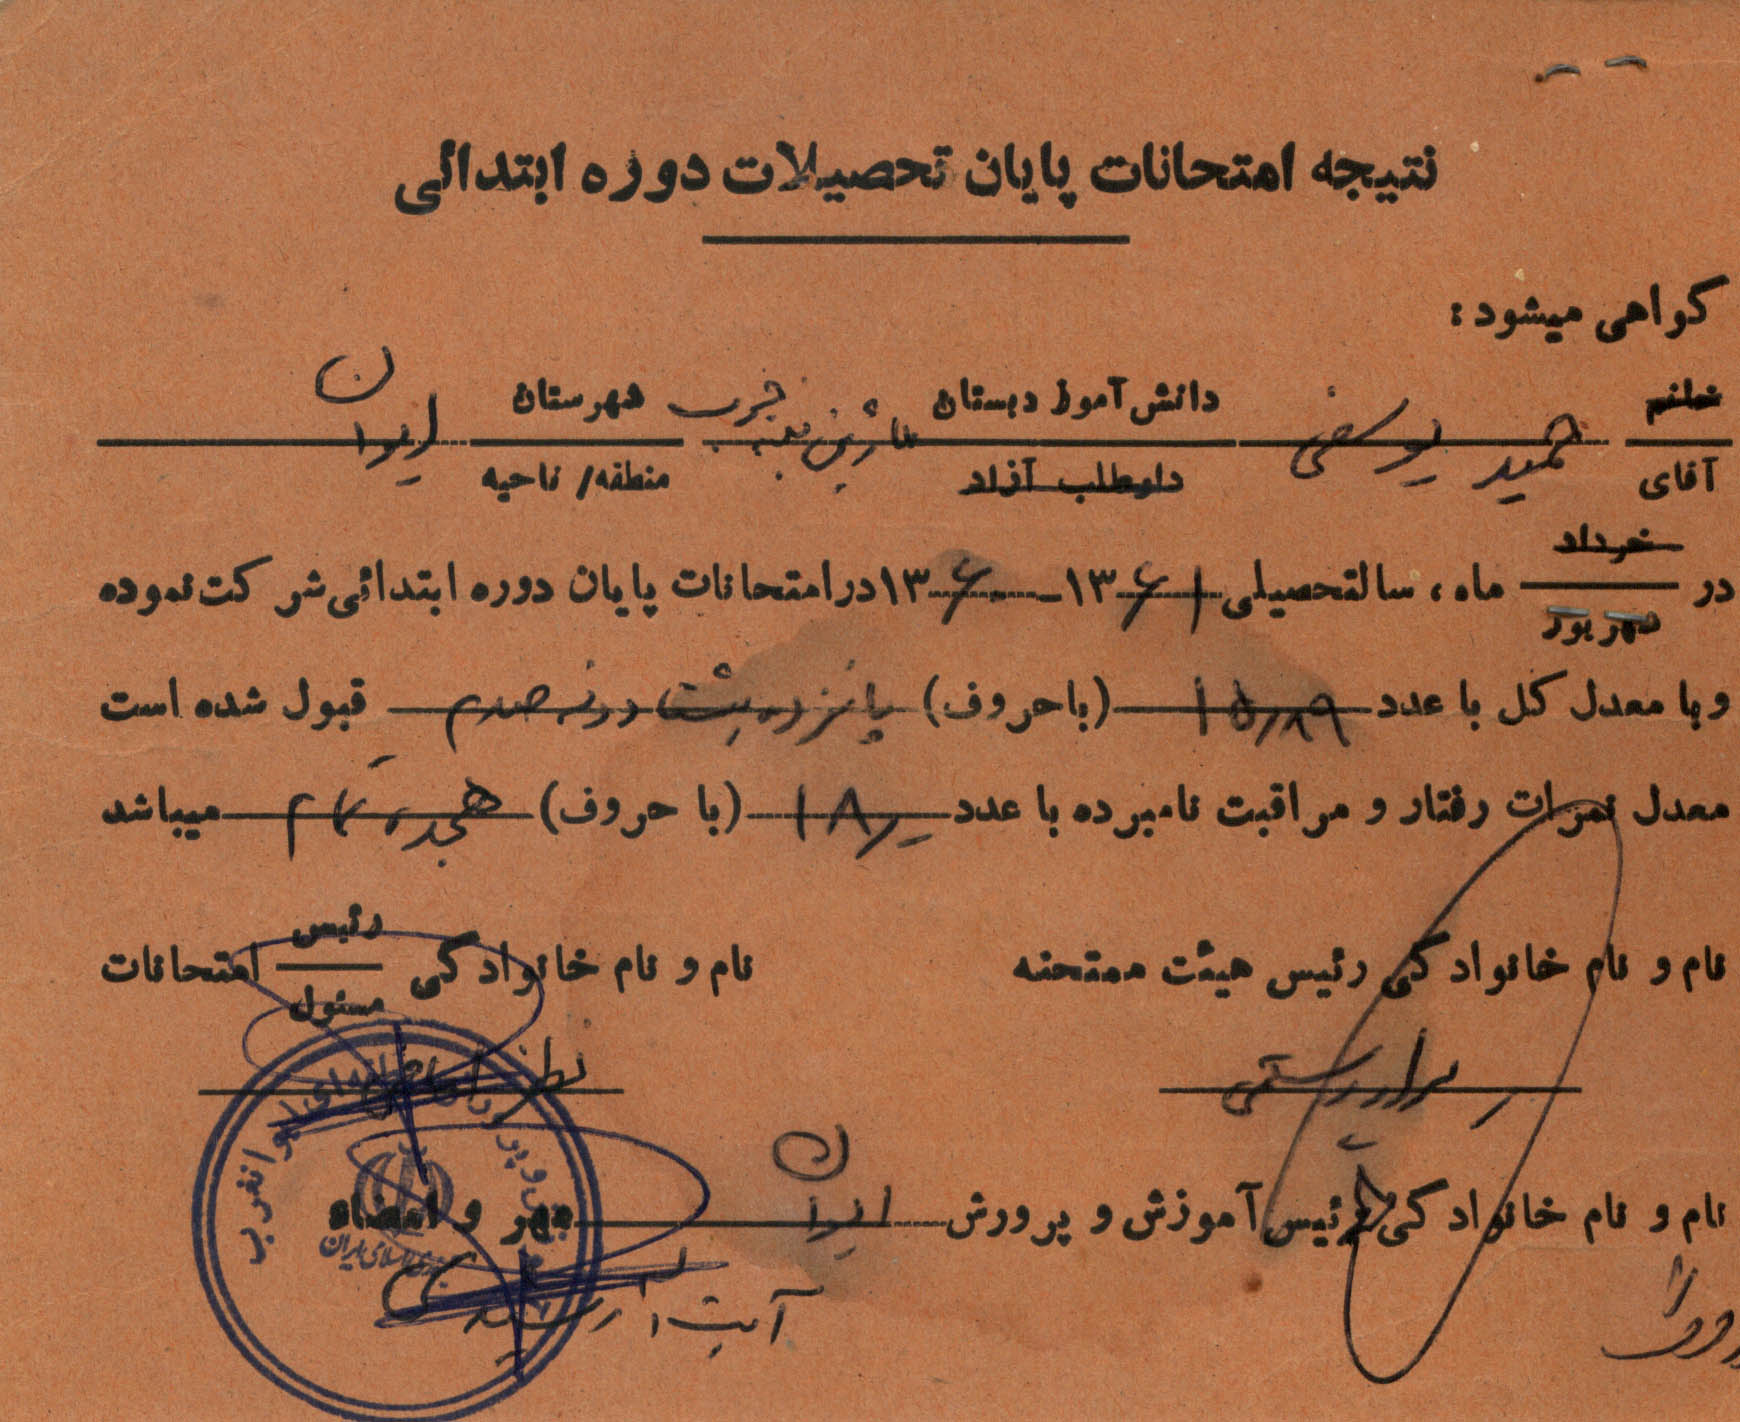 نتیجه امتحانات پایان تحصیلات دوره ابتدائی
گواهی میشود :
خانم
آقای
حمید یوسفی
دانش آموز دبستان
داوطلب آزاد
غرب
شهرستان
منطقه/ ناحیه
ایوان
در
خرداد
شهریور
ماه ، سالتحصیلی ۱۳۶۱ - ۱۳۶۰ در امتحانات پایان دوره ابتدائی شرکت نموده
و با معدل کل با عدد ۱۵/۸۹ (باحروف) پانزده هشتاد و نه صدم قبول شده است
معدل نمرات رفتار و مراقبت نامبرده با عدد ۱۸/ (با حروف) هجده تمام میباشد
نام و نام خانوادگی رئیس هیئت ممتحنه
نام و نام خانوادگی
رئیس
مسئول
امتحانات
نام و نام خانوادگی رئیس آموزش و پرورش ایوان مهر و امضاء
جمهوری اسلامی ایران